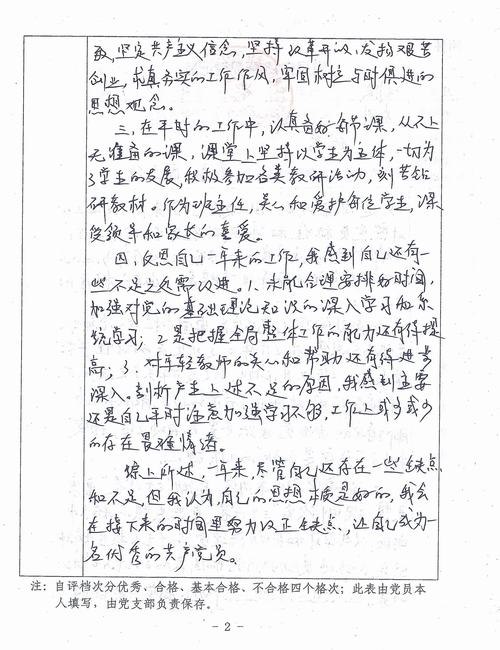 致,坚定共产主义信念,坚持改革开放,发扬艰苦
创业,求真务实的工作作风,牢固树立与时俱进的
思想观念。
三、在平时的工作中,认真备好每节课,从不上
无准备的课,课堂上坚持以学生为主体,一切为
了学生的发展,积极参加各类教研活动,刻苦钻
研教材。作为班主任,关心和爱护每位学生,深
受领导和家长的喜爱。
四、反思自己一年来的工作,我感到自己还有一
些不足之处需改进。1、未能合理安排好时间,
加强对党的基础理论知识的深入学习和系
统学习;2是把握全局整体工作的能力还有待提
高;3、对年轻教师的关心和帮助还有待进步
深入。剖析产生上述不足的原因,我感到主要
还是自己平时注意加强学习不够,工作上或多或少
的存在畏难情绪。
综上所述,一年来,尽管自己还存在一些缺点
和不足,但我认为,自己的思想本质是好的,我会
在接下来的时间里努力改正缺点,让自己成为一
名优秀的共产党员。
注:自评档次分优秀、合格、基本合格、不合格四个格次;此表由党员本
人填写,由党支部负责保存。
- 2 -